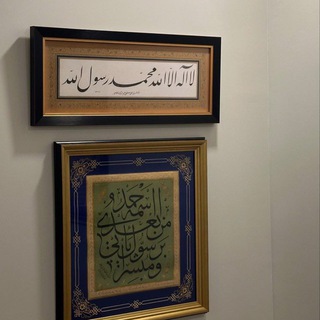 لا اله الا الله محمد رسول الله
ومبشرا
برسول يأتي
من بعدي
اسمه احمد